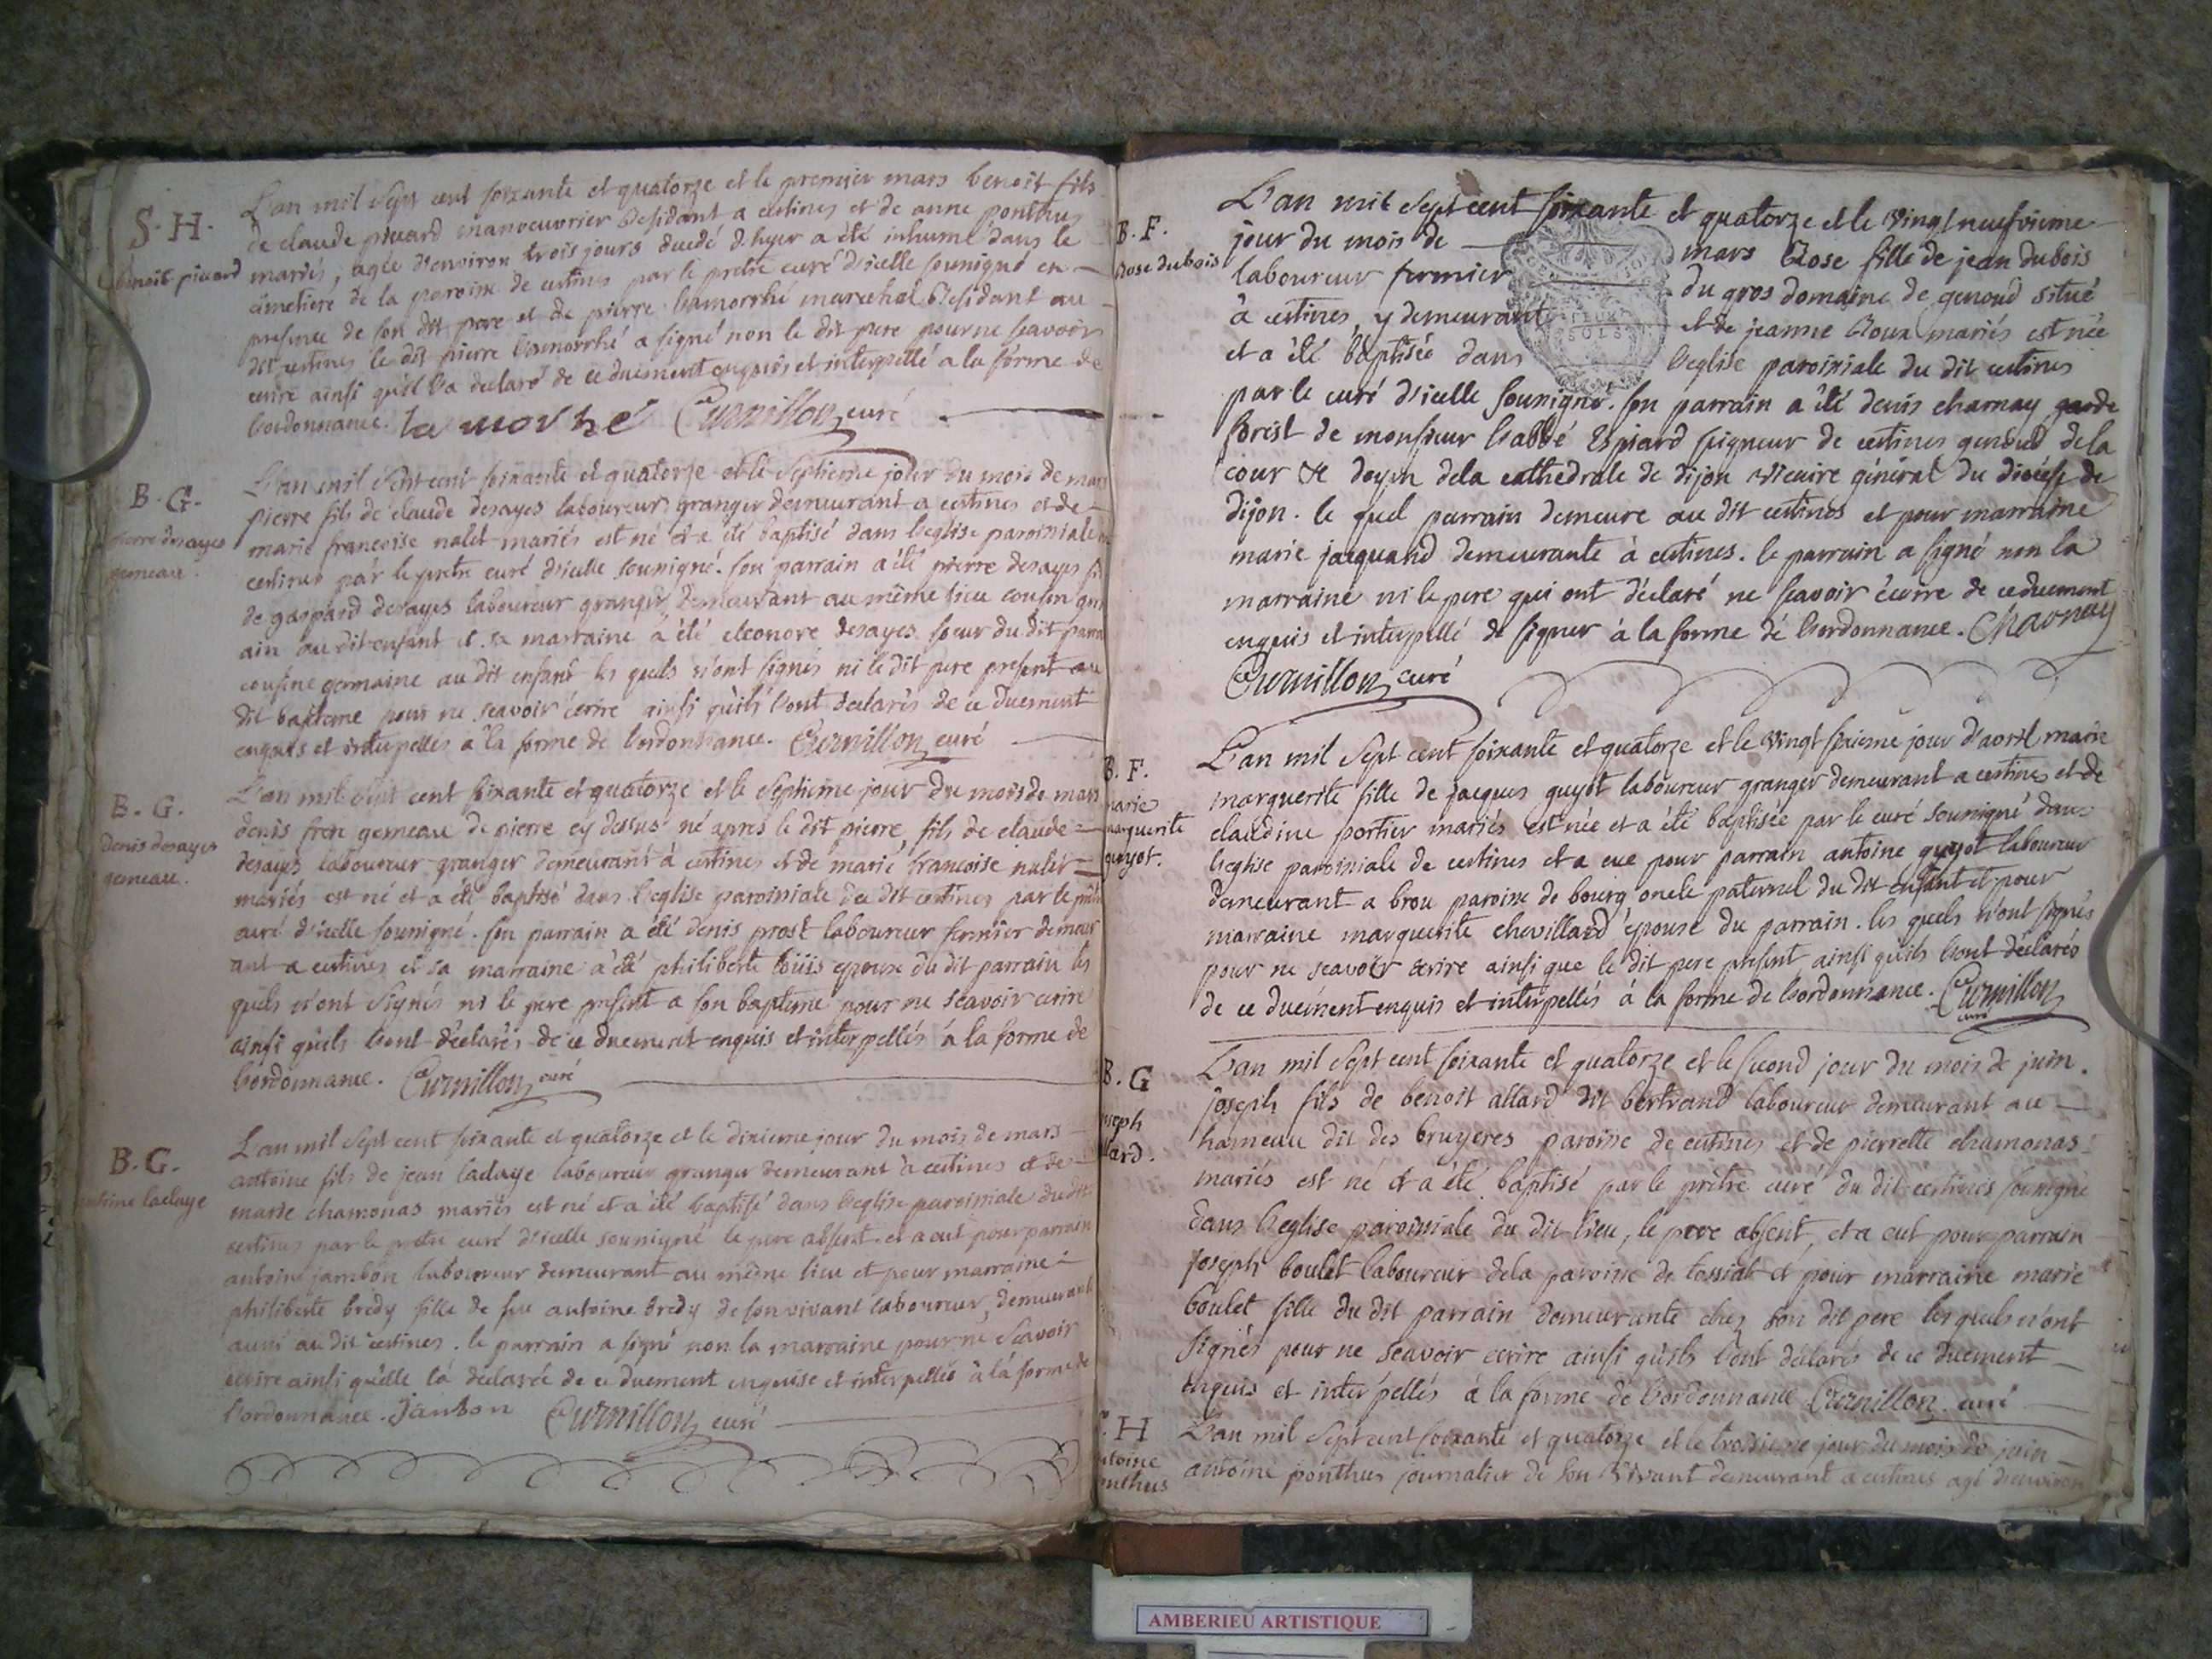 S. H.
benoit picard
L'an mil sept cent soixante et quatorze et le premier mars benoit fils
de claude picard manoeuvrier Residant a certines et de anne ponthus
mariés, agée d'environ trois jours decedé d'hyer a été inhumé dans le
cimetiere de la paroisse de certines par le pretre curé d'icelle sousigné en
presence de son dit pere et de pierre lamorrhé marechal Residant au
dit certines le dit pierre lamorrhé a signé non le dit pere pour ne scavoir
ecrire ainsi qu'il l'a declaré de ce duement enquis et interpellé a la forme de
l'ordonnance. la morhe Curnillon curé
B. G.
pierre desayes
gemeau.
L'an mil sept cent soixante et quatorze et le septieme jour du mois de mars
pierre fils de claude desayes laboureur granger demeurant a certines et de
marie francoise nalet mariés est né et a été baptisé dans l'eglise paroissiale
certines par le pretre curé d'icelle sousigné. son parrain a été pierre desayes
de gaspard desayes laboureur granger demeurant au même lieu cousin
ain au dit enfant et sa marraine a été eleonore desayes soeur du dit
cousine germaine au dit enfant les quels n'ont signés ni le dit pere present au
dit bapteme pour ne scavoir écrire ainsi qu'ils l'ont declarés de ce duement
enquis et interpellés a la forme de l'ordonnance. Curnillon curé
B. G.
denis desayes
gemeau.
L'an mil sept cent soixante et quatorze et le septieme jour du mois de mars
denis frere gemeau de pierre cy dessus né apres le dit pierre, fils de claude
desayes laboureur granger demeurant à certines et de marie francoise nalet
mariés est né et a été baptisé dans l'eglise paroissiale du dit certines par le
curé d'icelle sousigné. son parrain a été denis prost laboureur fermier demeur
ant a certines et sa marraine a été philiberte epouse du dit parrain les
quels n'ont signés ni le pere present a son bapteme pour ne scavoir ecrire
ainsi qu'ils l'ont déclarés de ce duement enquis et interpellés à la forme de
l'ordonnance. Curnillon curé
B. G.
antoine laclaye
L'an mil sept cent soixante et quatorze et le dixieme jour du mois de mars
antoine fils de jean laclaye laboureur granger demeurant à certines et de
marie chamonas mariés est né et a été baptisé dans l'eglise paroissiale du dit
certines par le pretre curé d'icelle sousigné le pere absent et a eut pour parrain
antoine jambon laboureur demeurant au même lieu et pour marraine
philiberte bredy fille de feu antoine bredy de son vivant laboureur demeurant
aussi au dit certines. le parrain a signé non la marraine pour ne scavoir
ecrire ainsi qu'elle la declarée de ce duement enquise et interpellée à la forme de
l'ordonnance. janbon Curnillon curé
B. F.
Rose dubois
L'an mil sept cent soixante et quatorze et le vingt neufvieme
jour du mois de mars Rose fille de jean dubois
laboureur fermier du gros domaine de genoud situé
à certines, y demeurant et de jeanne Roux mariés est née
et a été baptisée dans l'eglise paroissiale du dit certines
par le curé d'icelle sousigné. son parrain a été denis charnay garde
forest de monsieur l'abbé Espiard seigneur de certines genoud de la
cour et doyen de la cathedrale de dijon vicaire général du diocése de
dijon. le quel parrain demeure au dit certines et pour marraine
marie jacquand demeurante à certines. le parrain a signé non la
marraine ni le pere qui ont déclaré ne scavoir écrire de ce duement
enquis et interpellé de signer à la forme de l'ordonnance. Charnay
Curnillon curé
B. F.
marie
marguerite
guyot.
L'an mil sept cent soixante et quatorze et le vingt sixieme jour d'avril marie
marguerite fille de jacques guyot laboureur granger demeurant a certines et de
claudine portier mariés est née et a été baptisée par le curé sousigné dans
l'eglise paroissiale de certines et a eue pour parrain antoine guyot laboureur
demeurant a brou paroisse de bourg oncle paternel du dit enfant et pour
marraine marguerite chevillard épouse du parrain. les quels n'ont signés
pour ne scavoir ecrire ainsi que le dit pere present ainsi qu'ils l'ont déclarés
de ce duement enquis et interpellés à la forme de l'ordonnance. Curnillon
curé
B. G
L'an mil sept cent soixante et quatorze et le second jour du mois de juin.
joseph fils de benoit allard dit bertrand laboureur demeurant au
hameau dit des bruyeres paroisse de certines et de pierrette chamonas
mariés est né et a été baptisé par le pretre curé du dit certines sousigné
dans l'eglise paroissiale du dit lieu, le pere absent, et a eut pour parrain
joseph boulet laboureur de la paroisse de tossiat et pour marraine marie
boulet fille du dit parrain demeurante chez son dit pere les quels n'ont
signés pour ne scavoir ecrire ainsi qu'ils l'ont déclarés de ce duement
enquis et interpellés à la forme de l'ordonnance Curnillon curé
H
L'an mil sept cent soixante et quatorze et le troisieme jour du mois de juin
antoine ponthus journalier de son vivant demeurant a certines agé d'environ
AMBERIEU ARTISTIQUE